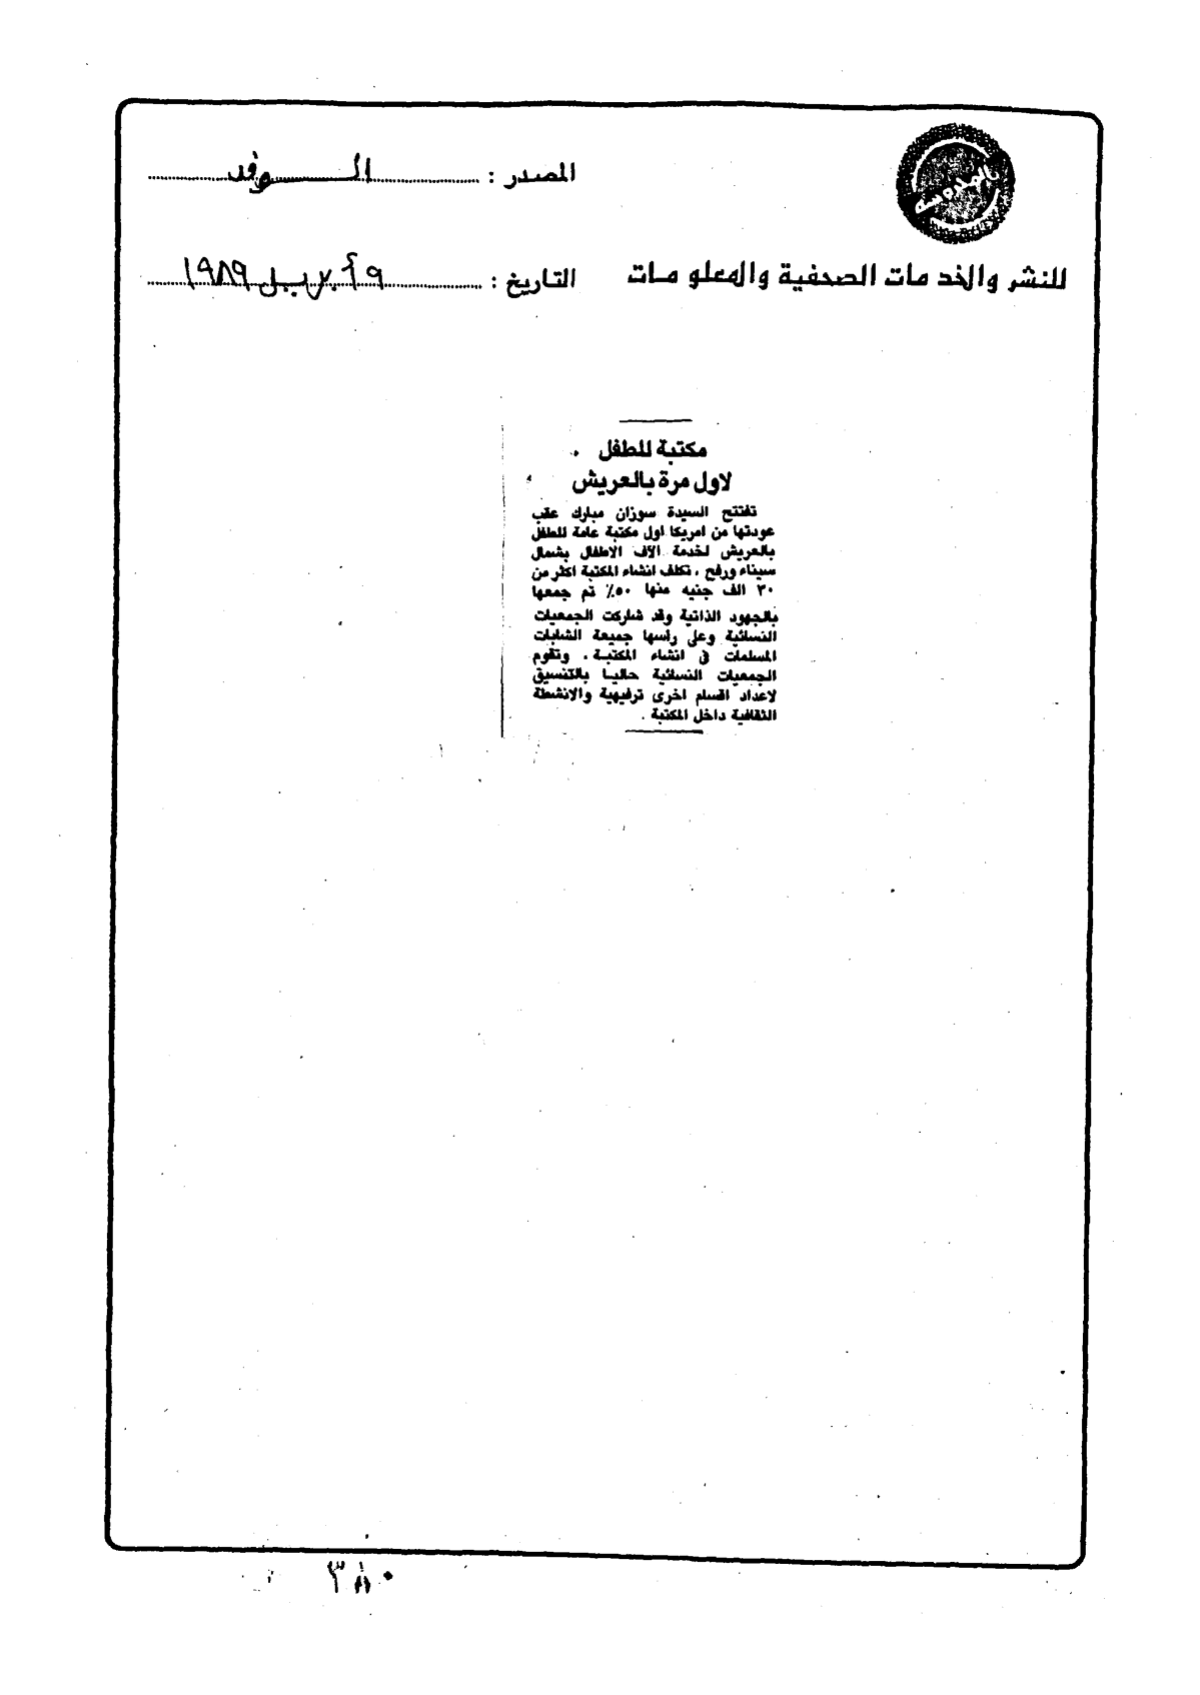 المصدر : الوفد
للنشر والخدمات الصحفية والمعلومات
التاريخ : ٩ أبريل ١٩٨٩
مكتبة للطفل
لاول مرة بالعريش
تفتتح السيدة سوزان مبارك عقب
عودتها من امريكا اول مكتبة عامة للطفل
بالعريش لخدمة الآف الاطفال بشمال
سيناء ورفح ، تكلف انشاء المكتبة اكثر من
٣٠ الف جنيه منها ٥٠٪ تم جمعها
بالجهود الذاتية وقد شاركت الجمعيات
النسائية وعلى رأسها جميعة الشابات
المسلمات في انشاء المكتبة . وتقوم
الجمعيات النسائية حاليا بالتنسيق
لاعداد اقسام اخرى ترفيهية والانشطة
الثقافية داخل المكتبة .
٣٨٠